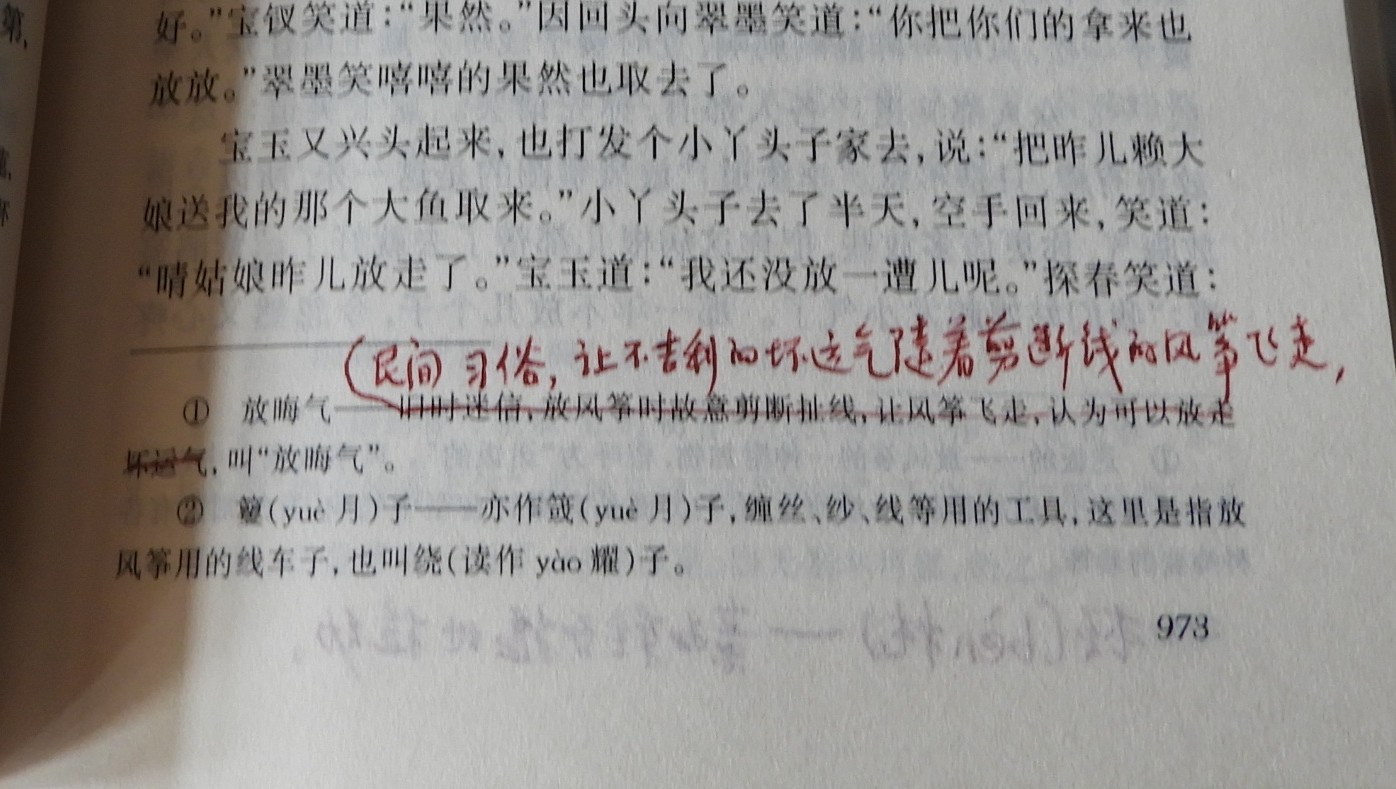 第,
好。”宝钗笑道：“果然。”因回头向翠墨笑道：“你把你们的拿来也
放放。”翠墨笑嘻嘻的果然也取去了。
宝玉又兴头起来，也打发个小丫头子家去，说：“把昨儿赖大
娘送我的那个大鱼取来。”小丫头子去了半天，空手回来，笑道：
“晴姑娘昨儿放走了。”宝玉道：“我还没放一遭儿呢。”探春笑道：
（民间习俗，让不吉利的坏运气随着剪断线的风筝飞走，
① 放晦气——旧时迷信，放风筝时故意剪断扯线，让风筝飞走，认为可以放走
坏运气，叫“放晦气”。
② 籰(yuè月)子——亦作篗(yuè月)子，缠丝、纱、线等用的工具，这里是指放
风筝用的线车子，也叫绕(读作 yào 耀)子。
973